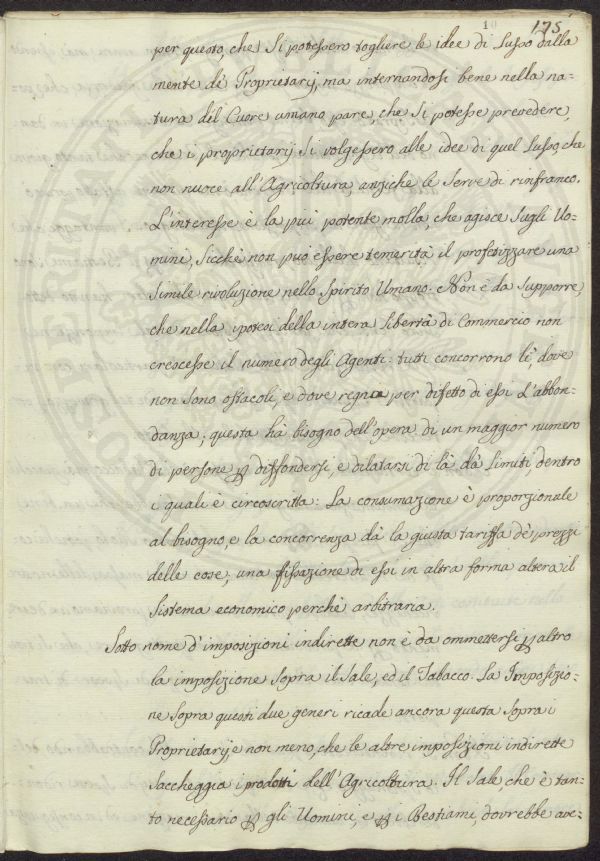 10 175
per questo, che si potessero togliere le idee di Lusso dalla
mente de' Proprietarij, ma internandosi bene nella na=
tura del Cuore umano pare, che si potesse prevedere,
che i proprietarij si volgessero alle idee di quel Lusso, che
non nuoce all'Agricoltura, anziche le serve di rinfranco.
L'interesse è la più potente molla, che agisce sugli Uo=
mini, sicchè non può essere temerità il profetizzare una
simile rivoluzione nello Spirito Umano. Non è da supporre,
che nella ipotesi della intera Libertà di Commercio non
crescesse il numero degli Agenti: tutti concorrono lì, dove
non sono ostacoli, e dove regna per difetto di essi L'abbon=
danza; questa hà bisogno dell'opera di un maggior numero
di persone ꝑ diffondersi, e dilatarsi di là dà Limiti, dentro
i quali è circoscritta: La consumazione è proporzionale
al bisogno, e la concorrenza dà la giusta tariffa de' prezzi
delle cose; una fissazione di essi in altra forma altera il
Sistema economico perchè arbitraria.
Sotto nome d'imposizioni indirette non è da ommettersi ꝑ altro
la imposizione sopra il Sale, ed il Tabacco. La Imposizio=
ne sopra questi due generi ricade ancora questa sopra i
Proprietarij, e non meno, che le altre imposizioni indirette
saccheggia i prodotti dell'Agricoltura. Il Sale, che è tan=
to necessario ꝑ gli Uomini, e ꝑ i Bestiami, dovrebbe ave=